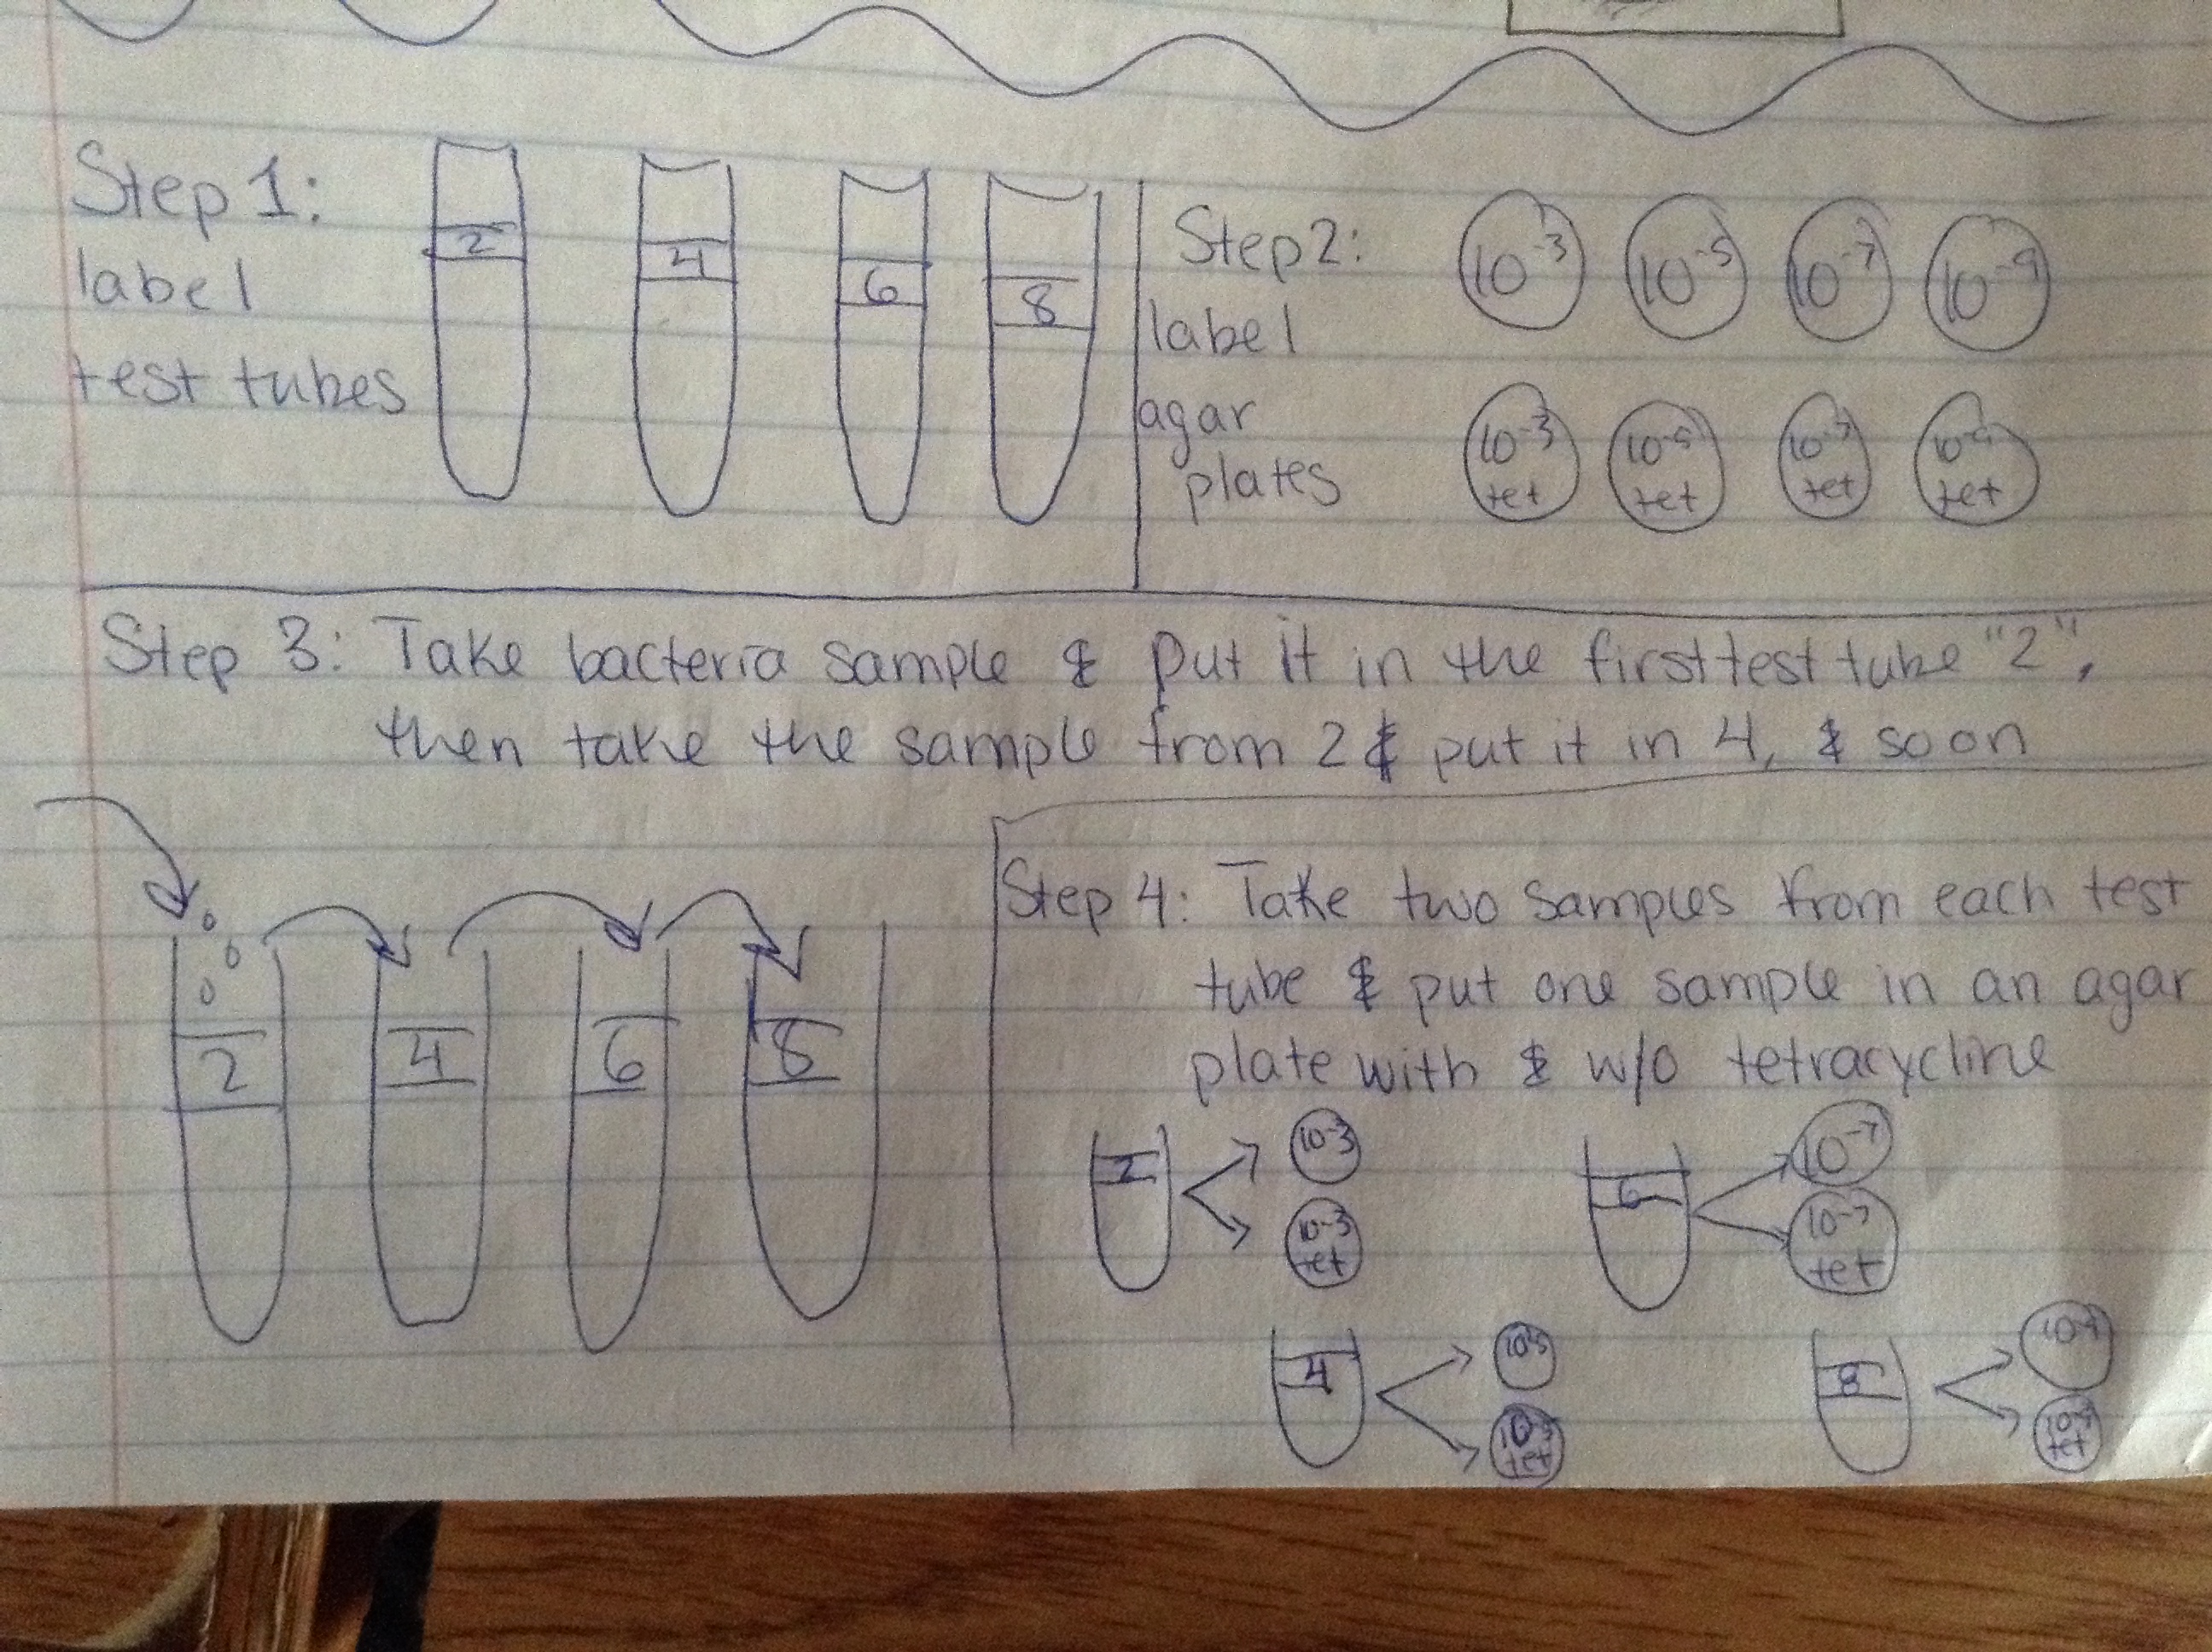 Step 1:
label
test tubes
2 4 6 8
Step 2:
label
agar
plates
10⁻³ 10⁻⁵ 10⁻⁷ 10⁻⁹
10⁻³ tet 10⁻⁵ tet 10⁻⁷ tet 10⁻⁹ tet
Step 3: Take bacteria sample & put it in the first test tube "2",
then take the sample from 2 & put it in 4, & so on
2 4 6 8
Step 4: Take two samples from each test
tube & put one sample in an agar
plate with & w/o tetracycline
2 10⁻³
10⁻³ tet
6 10⁻⁷
10⁻⁷ tet
4 10⁻⁵
10⁻⁵ tet
8 10⁻⁹
10⁻⁹ tet